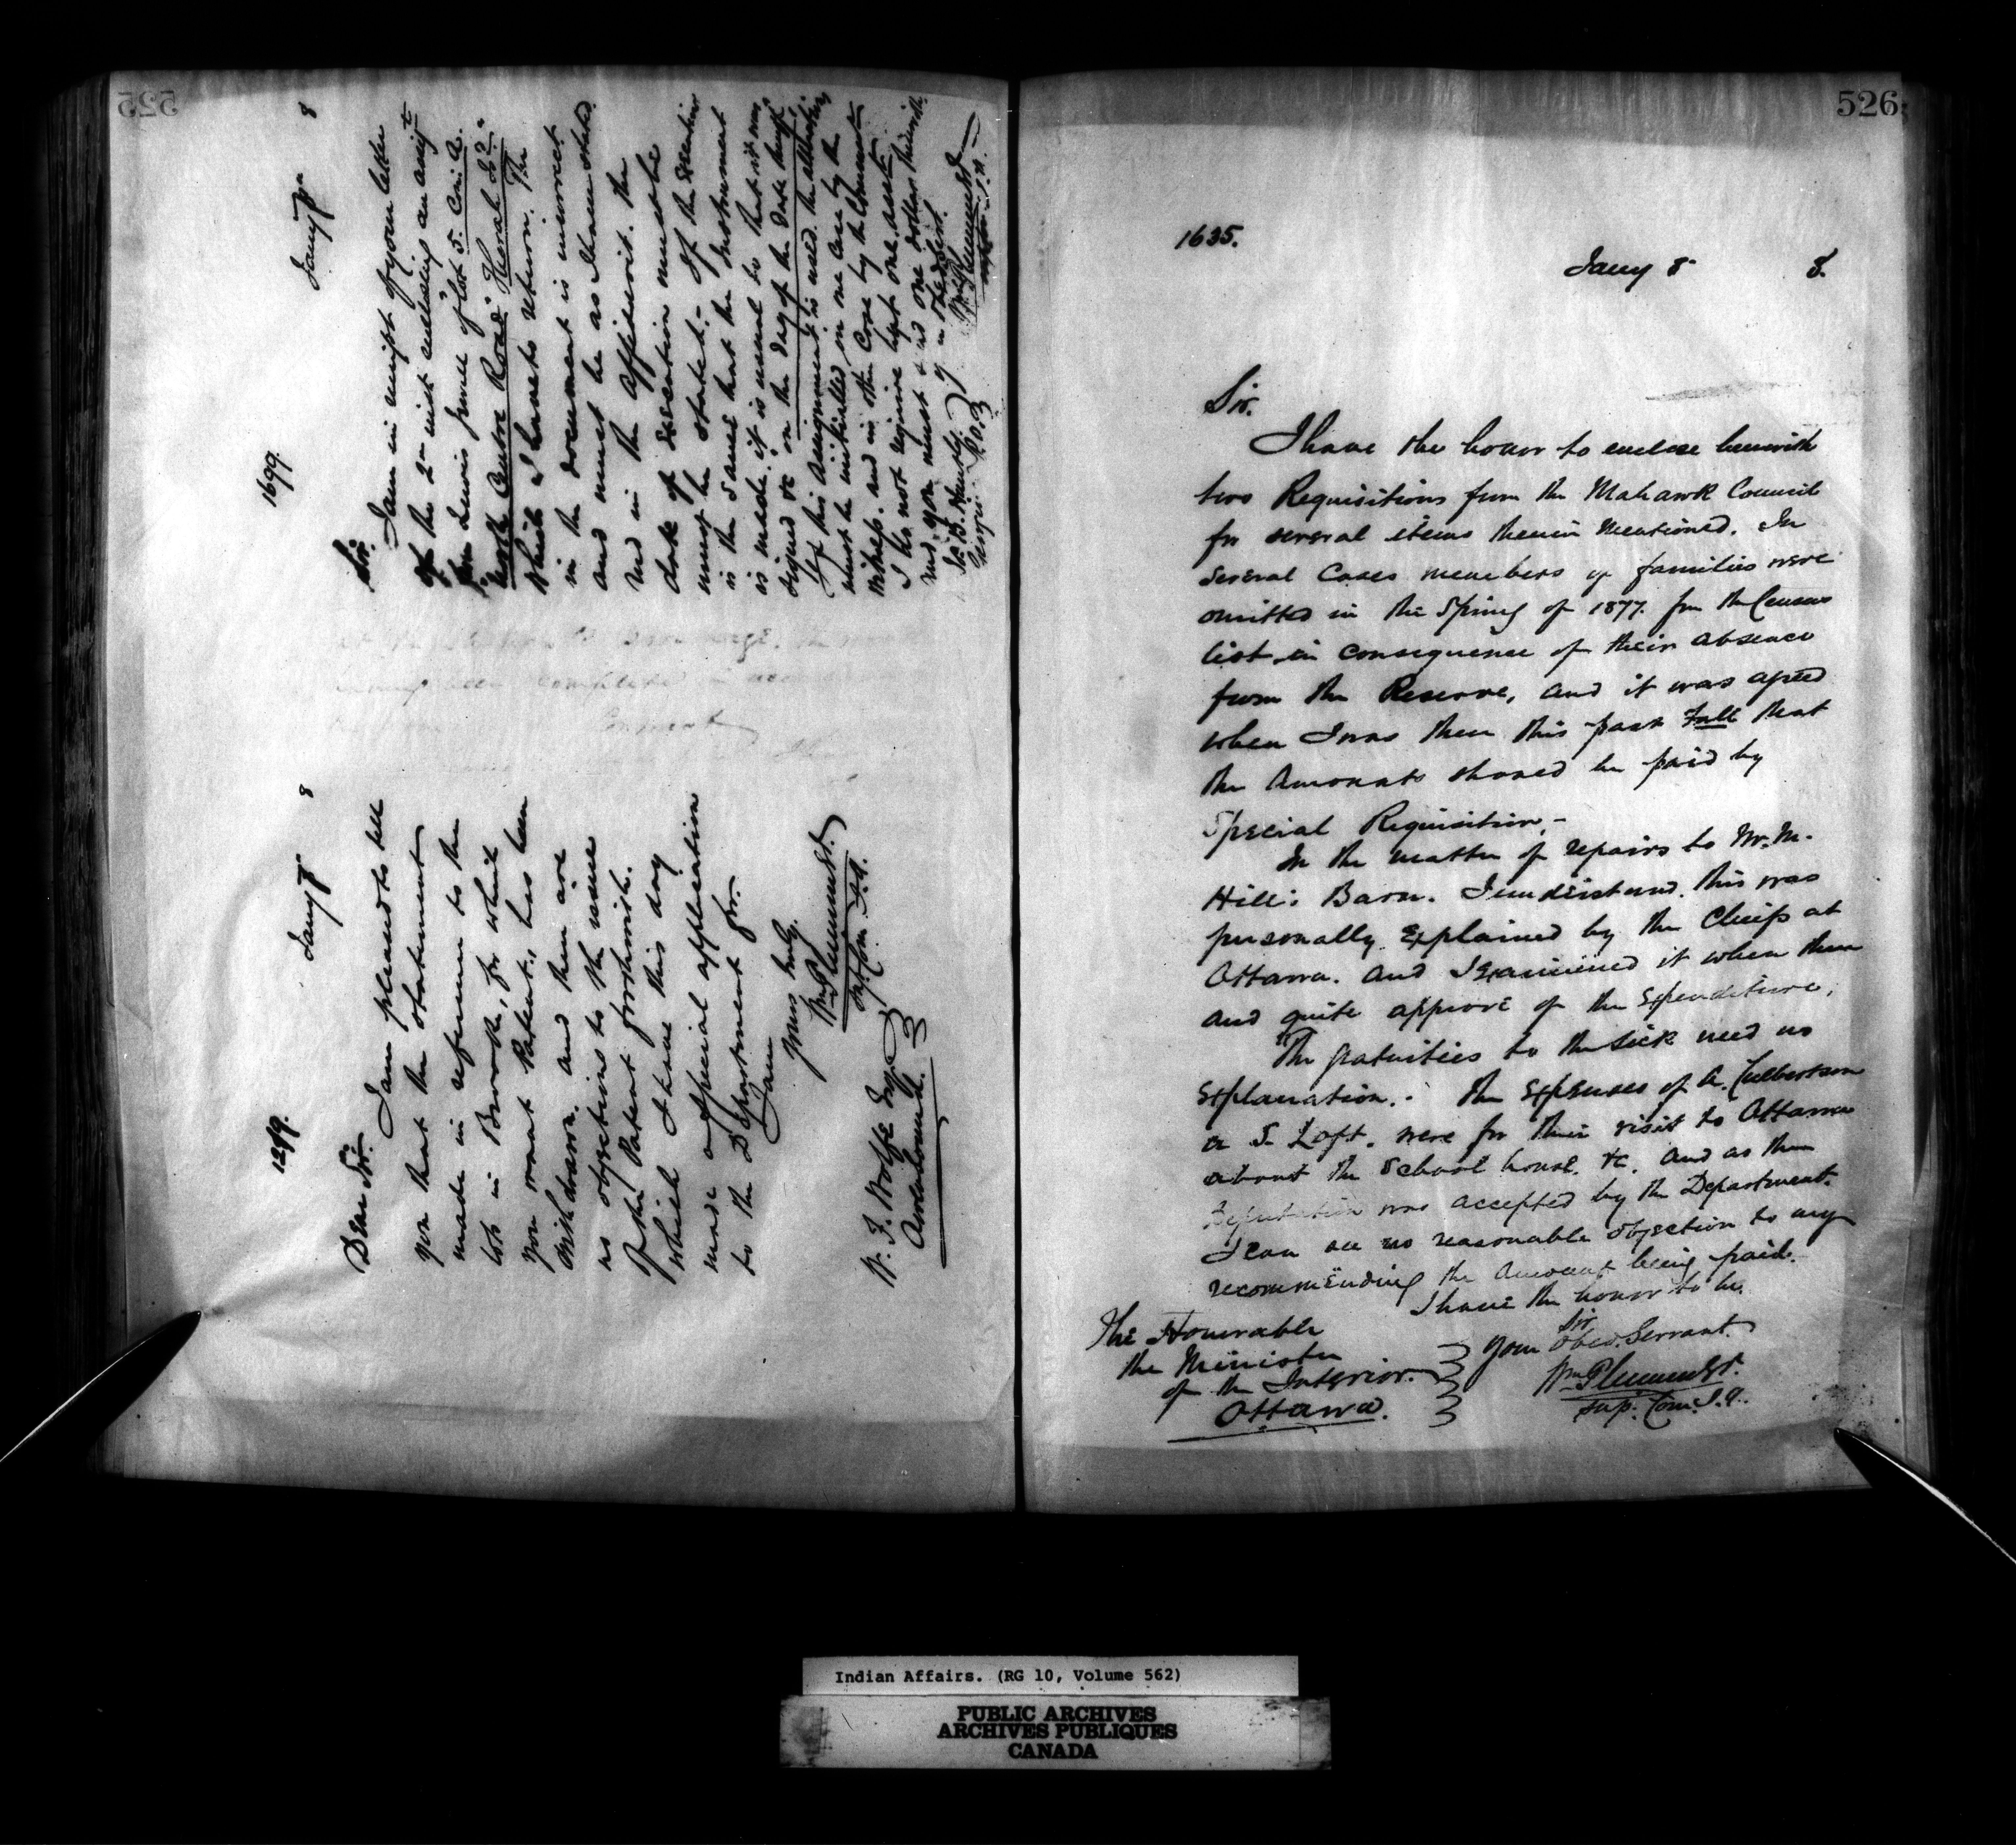 1699.
Jany 8
8
Sir.
I am in receipt of your letter
of the 2nd inst enclosing an assigt
from Lewis of lot 5. Con. A.
North Centre Road Keppel &c.
which I have to return. The
in the document is incorrect
and must be as I have stated
in the affidavit. The
date of execution must be
must be stated. If the execution
is the same that the Instrument
is made, it is usual to that it was
signed &c on the day of the date
If this assignment is used the alterations
must be initialled in one case by the
witness. and in the other Case by the Commr
I do not require kept one
and you must send one dollar therewith
Wm Plummer
1259.
Jany 8
8
Dear Sir.
I am pleased to tell
you that the statement
made in reference to the
lots in Brooke, for which
you want Patent, has been
withdrawn. and there are
no objections to the issue
of the Patent forthwith.
which I have this day
made a special application
to the Department for.
I am
yours truly.
Wm Plummer
Sup. Com. I.A.
W. F. Wolfe Esq
526.
1635.
Jany 8 8.
Sir.
I have the honor to enclose herewith
two Requisitions from the Mohawk Council
for several items therein mentioned. In
several Cases members of families were
omitted in the Spring of 1877. from the Census
list, in consequence of their absence
from the Reserve, and it was agreed
when I was there this past Fall that
the Amounts should be paid by
Special Requisition.-
In the matter of repairs to Wm.
Hill's Barn. I understand this was
personally explained by the Chiefs at
Ottawa. and I examined it when there
and quite approve of the expenditure,
The gratuities to the sick need no
explanation.- The expenses of A. Culbertson
& S. Loft. were for their visit to Ottawa
about the School house. &c. and as the
Deputation was accepted by the Department.
I can see no reasonable objection to my
recommending the Amount being paid.
I have the honor to be.
Sir
Your Obed. Servant.
Wm Plummer
Sup. Com. I.A.
The Honorable
the Minister
of the Interior.
Ottawa.
Indian Affairs. (RG 10, Volume 562)
PUBLIC ARCHIVES
ARCHIVES PUBLIQUES
CANADA